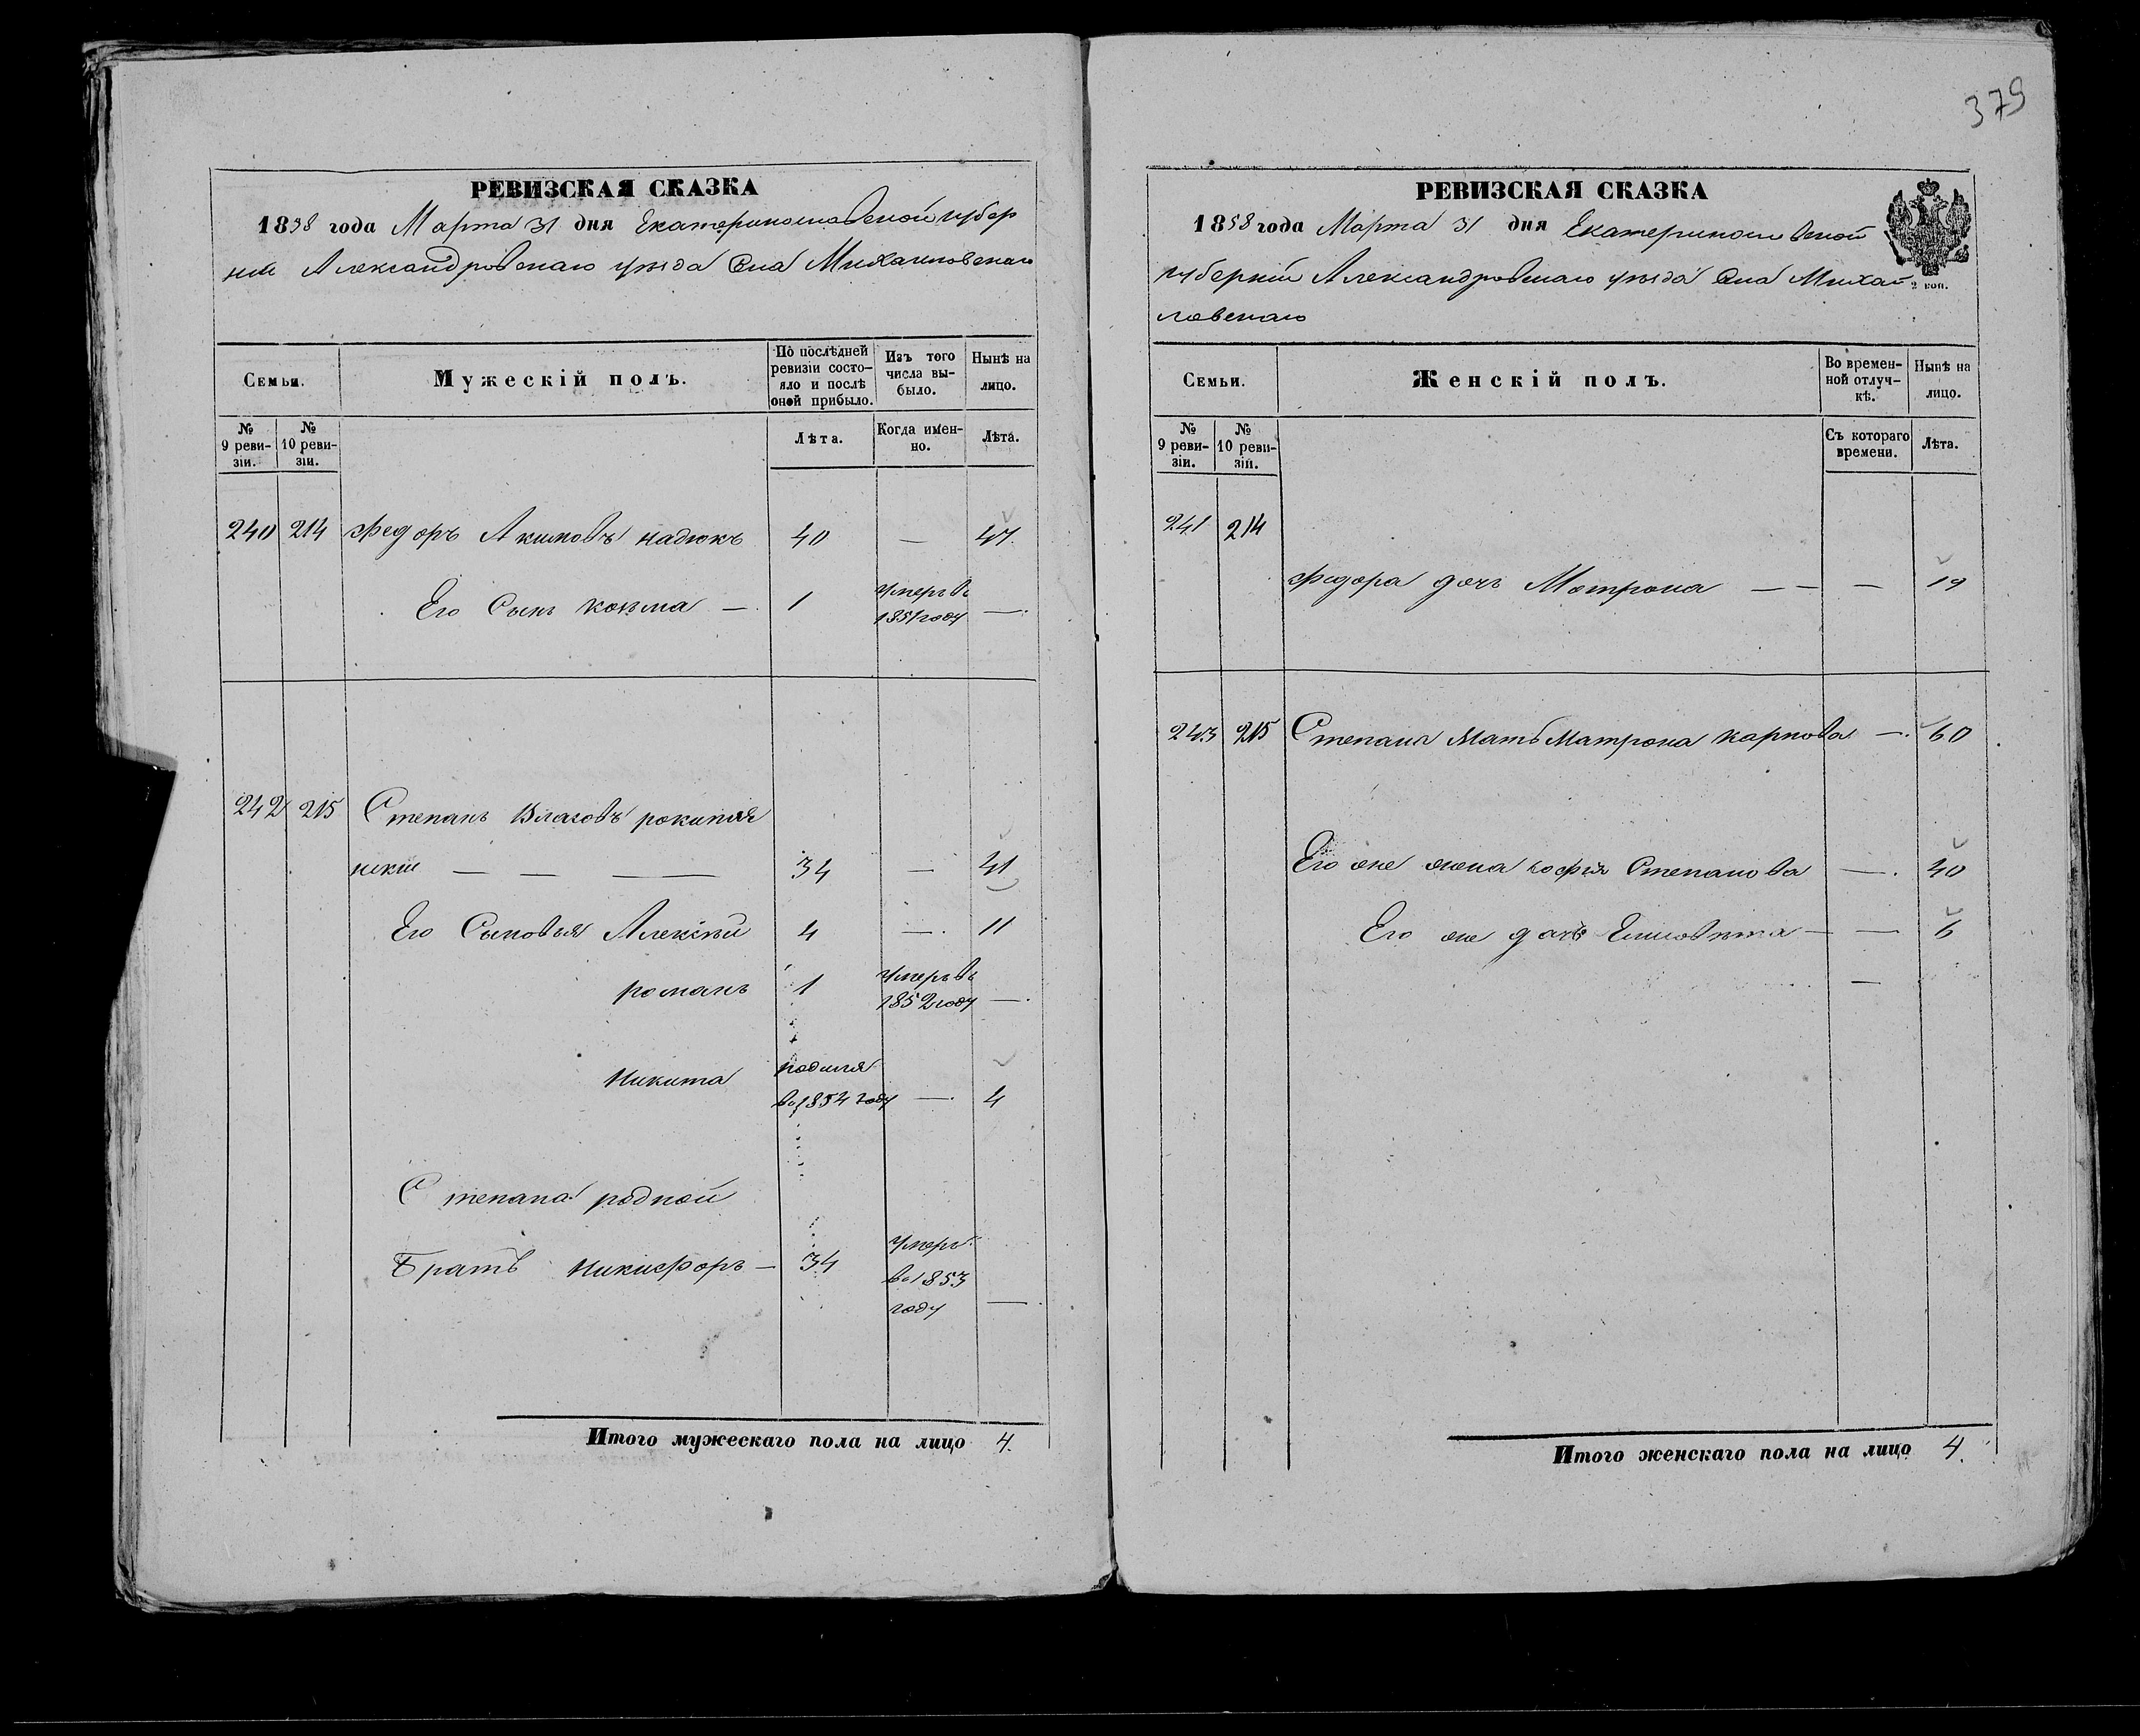 379
РЕВИЗСКАЯ СКАЗКА
1858 года Марта 31 дня Екатеринославской губер
нии Александровскаго уезда Села Михайловскаго
Семьи.
Мужескій полъ.
По послѣдней ревизіи состо-
яло и послѣ оной прибыло.
Изъ того числа вы-
было.
Нынѣ на лицо.
№ 9 реви-
зіи.
№ 10 реви-
зіи.
Лѣта.
Когда имен-
но.
Лѣта.
240 214 Федоръ Акимовъ надюкъ 40 — 47.
Его Сынъ козьма — 1 умеръ въ
1851 году —
242 215 Степанъ Власовъ
— — — 34 — 41
Его Сыновья Алексѣй 4 — 11
романъ 1 умеръ въ
1852 году —
никита
в 1854 году — 4
Степана родной
Братъ никифоръ — 34 умеръ
в 1853
году —
Итого мужескаго пола на лицо 4.
РЕВИЗСКАЯ СКАЗКА
1858 года Марта 31 дня Екатеринославской
губерніи Александровскаго уезда Села Михай
ловскаго
2 коп.
Семьи.
Женскій полъ.
Во времен-
ной отлуч-
кѣ.
Нынѣ на лицо.
№ 9 реви-
зіи.
№ 10 реви-
зіи.
Съ котораго времени.
Лѣта.
241 214
Федора дочь Мотрона — — — 19
243 215 Степана Мать Матрона карпова — 60
Его же жена софия Степанова — 40
Его же дочь Елисовѣта — — 6
—
Итого женскаго пола на лицо 4.